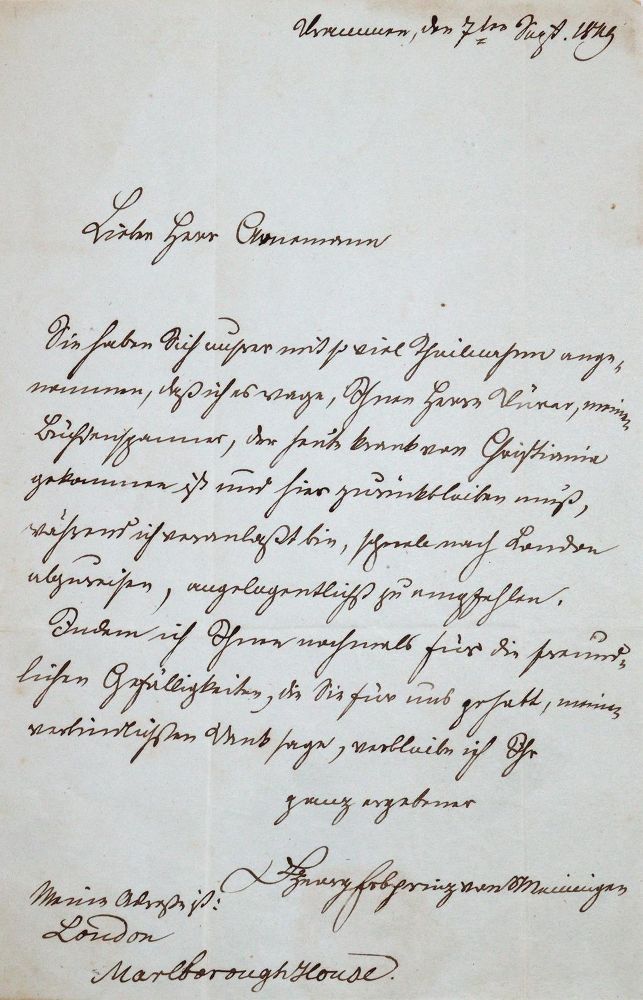 Drammen, den 7ten Sept. 1849
Lieber Herr Arnemann
Sie haben Sich unsrer mit so viel Theilnahme ange-
nommen, daß ich es wage, Ihnen Herrn Dürer, meinen
Büchsenspanner, der heute krank von Christiania
gekommen ist und hier zurückbleiben muß,
während ich veranlaßt bin, schnell nach London
abzureisen, angelegentlichst zu empfehlen.
Indem ich Ihnen nochmals für die freund-
lichen Gefälligkeiten, die Sie für uns gehabt, meinen
verbindlichsten Dank sage, verbleibe ich Ihr
ganz ergebener
Georg Erbprinz von Meiningen
Meine Adresse ist:
London
Marlborough House.